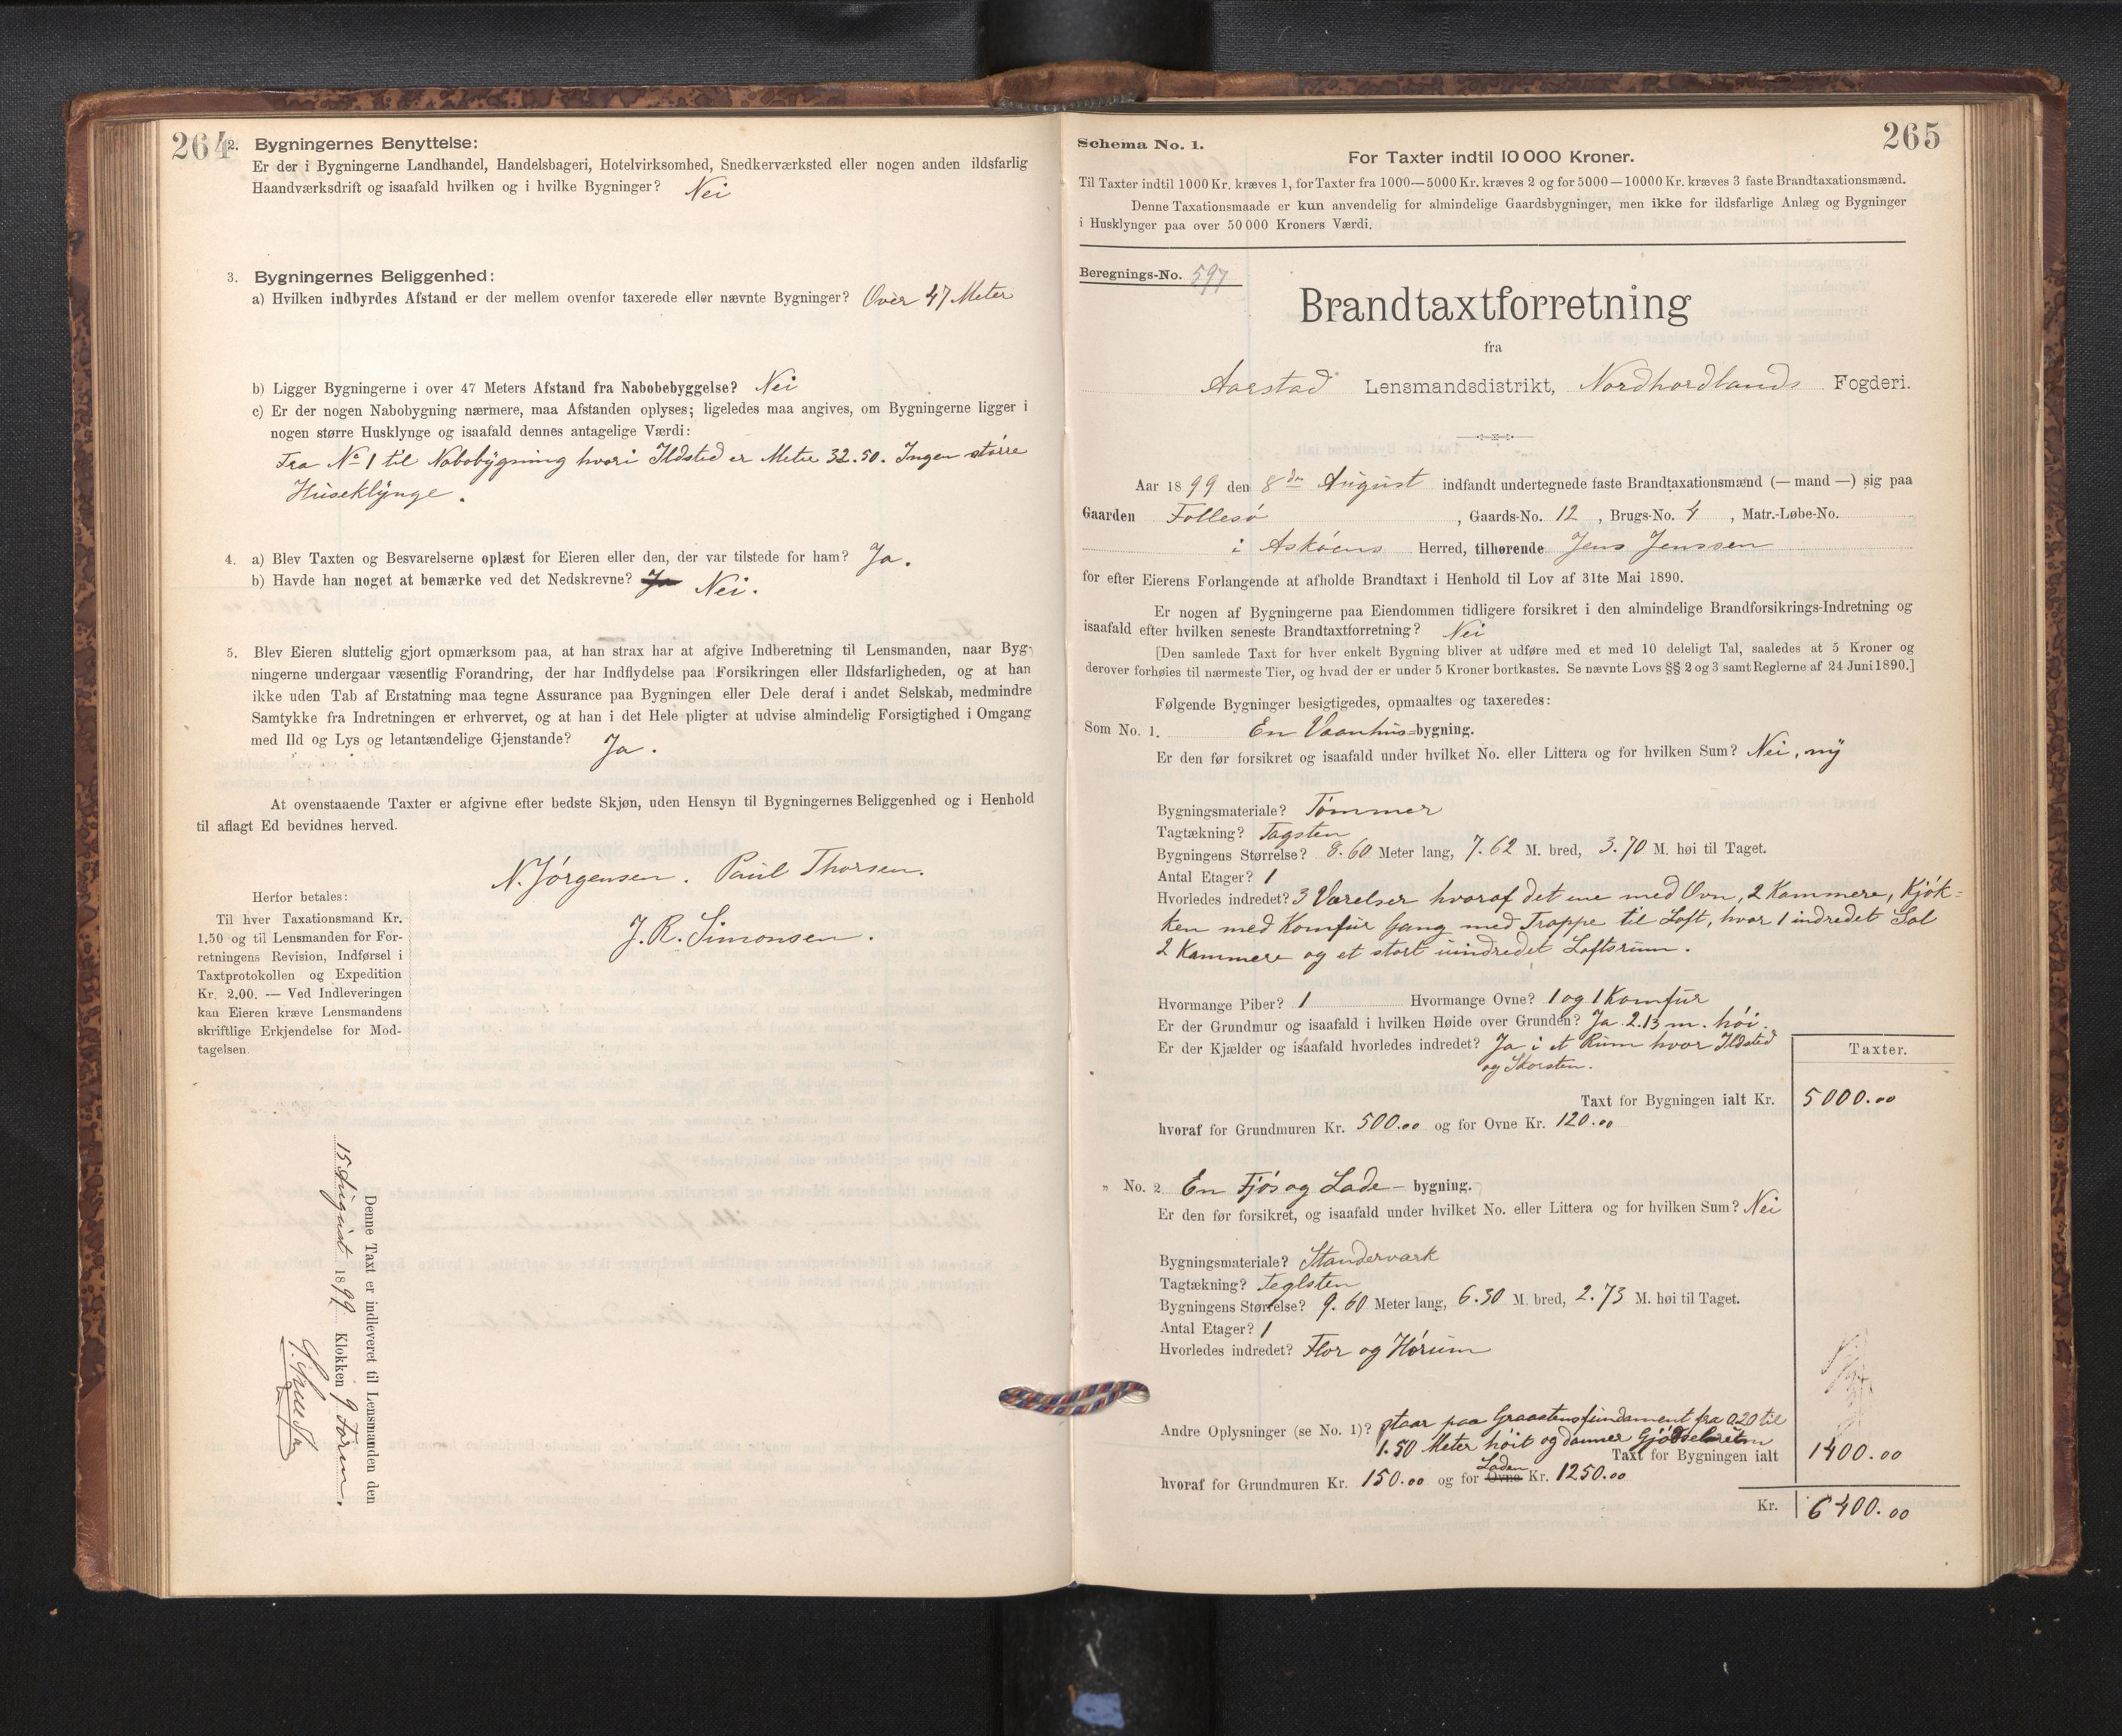 264
2. Bygningernes Benyttelse:
Er der i Bygningerne Landhandel, Handelsbageri, Hotelvirksomhed, Snedkerværksted eller nogen anden ildsfarlig
Haandværksdrift og isaafald hvilken og i hvilke Bygninger? Nei
3. Bygningernes Beliggenhed:
a) Hvilken indbyrdes Afstand er der mellem ovenfor taxerede eller nævnte Bygninger? Over 47 Meter
b) Ligger Bygningerne i over 47 Meters Afstand fra Nabobebyggelse? Nei
c) Er der nogen Nabobygning nærmere, maa Afstanden oplyses; ligeledes maa angives, om Bygningerne ligger i
nogen større Husklynge og isaafald dennes antagelige Værdi:
Fra No 1 til Nabobygning hvori Ildsted er Meter 32.50. Ingen større
Huseklynge.
4. a) Blev Taxten og Besvarelserne oplæst for Eieren eller den, der var tilstede for ham? Ja.
b) Havde han noget at bemærke ved det Nedskrevne? Ja Nei.
5. Blev Eieren sluttelig gjort opmærksom paa, at han strax har at afgive Indberetning til Lensmanden, naar Byg-
ningerne undergaar væsentlig Forandring, der har Indflydelse paa Forsikringen eller Ildsfarligheden, og at han
ikke uden Tab af Erstatning maa tegne Assurance paa Bygningen eller Dele deraf i andet Selskab, medmindre
Samtykke fra Indretningen er erhvervet, og at han i det Hele pligter at udvise almindelig Forsigtighed i Omgang
med Ild og Lys og letantændelige Gjenstande? Ja.
At ovenstaaende Taxter er afgivne efter bedste Skjøn, uden Hensyn til Bygningernes Beliggenhed og i Henhold
til aflagt Ed bevidnes herved.
N. Jørgensen. Paul Thorsen.
J. R. Simonsen.
Herfor betales:
Til hver Taxationsmand Kr.
1.50 og til Lensmanden for For-
retningens Revision, Indførsel i
Taxtprotokollen og Expedition
Kr. 2.00. — Ved Indleveringen
kan Eieren kræve Lensmandens
skriftlige Erkjendelse for Mod-
tagelsen.
Denne Taxt er indleveret til Lensmanden den
15 August 1899 Klokken 9 Form.
265
Schema No. 1.
For Taxter indtil 10 000 Kroner.
Til Taxter indtil 1000 Kr. kræves 1, for Taxter fra 1000—5000 Kr. kræves 2 og for 5000—10000 Kr. kræves 3 faste Brandtaxationsmænd.
Denne Taxationsmaade er kun anvendelig for almindelige Gaardsbygninger, men ikke for ildsfarlige Anlæg og Bygninger
i Husklynger paa over 50 000 Kroners Værdi.
Beregnings-No. 597
Brandtaxtforretning
fra
Aarstad Lensmandsdistrikt, Nordhordlands Fogderi.
Aar 1899 den 8de August indfandt undertegnede faste Brandtaxationsmænd (— mand —) sig paa
Gaarden Follesø, Gaards-No. 12, Brugs-No. 4, Matr.-Løbe-No.
i Askøens Herred, tilhørende Jens Jenssen
for efter Eierens Forlangende at afholde Brandtaxt i Henhold til Lov af 31te Mai 1890.
Er nogen af Bygningerne paa Eiendommen tidligere forsikret i den almindelige Brandforsikrings-Indretning og
isaafald efter hvilken seneste Brandtaxtforretning? Nei
[Den samlede Taxt for hver enkelt Bygning bliver at udføre med et med 10 deleligt Tal, saaledes at 5 Kroner og
derover forhøies til nærmeste Tier, og hvad der er under 5 Kroner bortkastes. Se nævnte Lovs §§ 2 og 3 samt Reglerne af 24 Juni 1890.]
Følgende Bygninger besigtigedes, opmaaltes og taxeredes:
Som No. 1. En Vaanhus-bygning.
Er den før forsikret og isaafald under hvilket No. eller Littera og for hvilken Sum? Nei, ny
Bygningsmateriale? Tømmer
Tagtækning? Tagsten
Bygningens Størrelse? 8.60 Meter lang, 7.62 M. bred, 3.70 M. høi til Taget.
Antal Etager? 1
Hvorledes indredet? 3 Værelser hvoraf det ene med Ovn, 2 Kammere, Kjøk-
ken med Komfur Gang med Trappe til Loft, hvor 1 indredet Sal
2 Kammere og et stort uindredet Loftsrum.
Hvormange Piber? 1 Hvormange Ovne? 1 og 1 Komfur
Er der Grundmur og isaafald i hvilken Høide over Grunden? Ja 2.13 m. høi.
Er der Kjælder og isaafald hvorledes indredet? Ja i et Rum hvor Ildsted
og Skorsten.
Taxter.
Taxt for Bygningen ialt Kr. 5000.00
hvoraf for Grundmuren Kr. 500.00 og for Ovne Kr. 120.00
„ No. 2. En Fjøs og Lade - bygning.
Er den før forsikret, og isaafald under hvilket No. eller Littera og for hvilken Sum? Nei
Bygningsmateriale? Standerverk
Tagtækning? Teglsten
Bygningens Størrelse? 9.60 Meter lang, 6.30 M. bred, 2.73 M. høi til Taget.
Antal Etager? 1
Hvorledes indredet? Flor og Hørum
Andre Oplysninger (se No. 1)? Staar paa Graastensfundament fra 0.20 til
1.50 Meter høit og danner Gjødselrum
Taxt for Bygningen ialt 1400.00
hvoraf for Grundmuren Kr. 150.00 og for Ovne Laden Kr. 1250.00
Kr. 6400.00